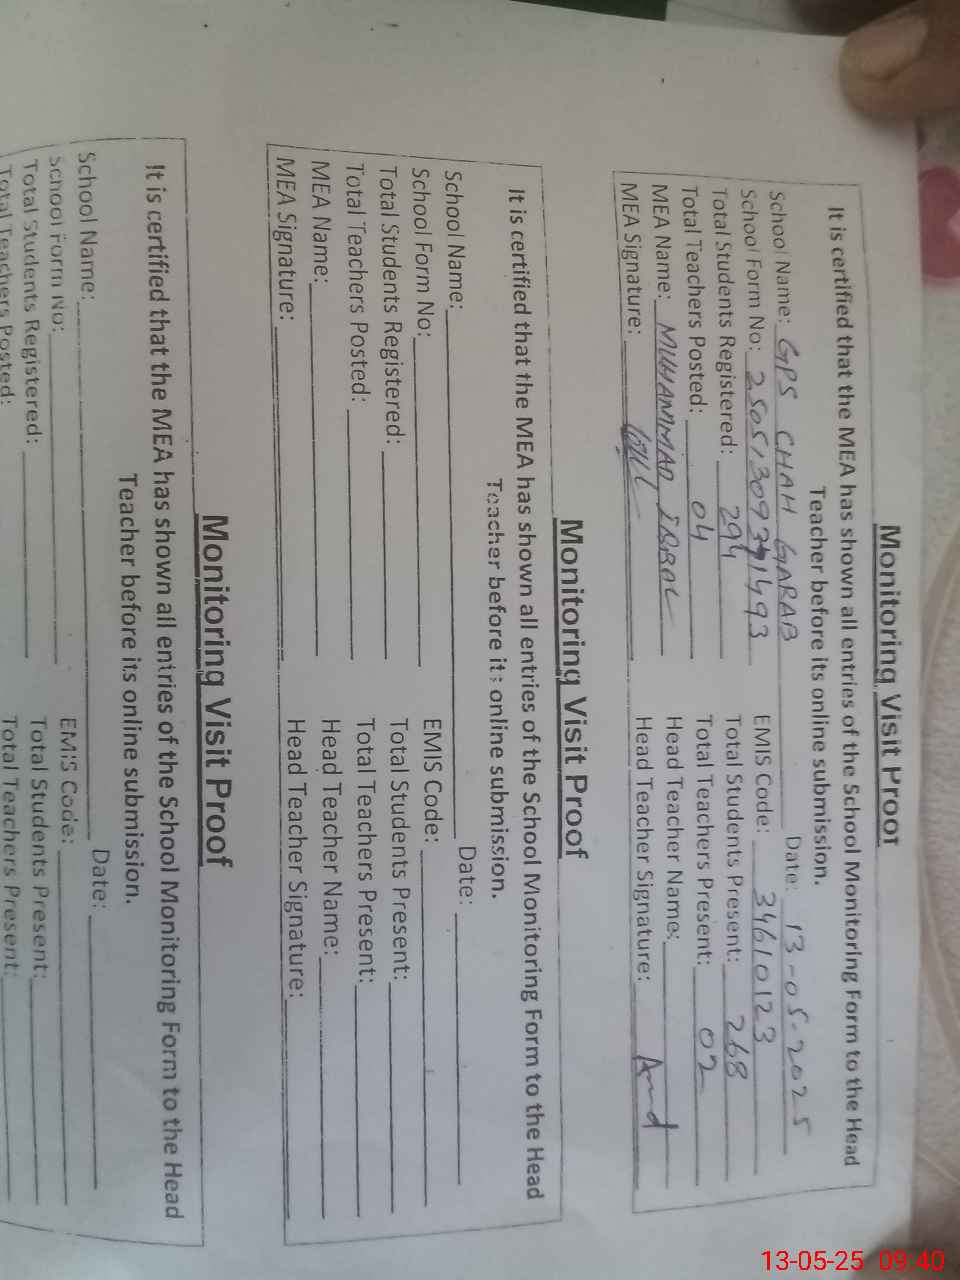 Monitoring Visit Proof
It is certified that the MEA has shown all entries of the School Monitoring Form to the Head
Teacher before its online submission.
School Name: GPS CHAH GARAB Date: 13-05-2025
School Form No: EMIS Code: 34610123
Total Students Registered: 294 Total Students Present: 268
Total Teachers Posted: 04 Total Teachers Present: 02
MEA Name: MUHAMMAD IQBAL Head Teacher Name:
MEA Signature: Head Teacher Signature:
Monitoring Visit Proof
It is certified that the MEA has shown all entries of the School Monitoring Form to the Head
Teacher before its online submission.
School Name: Date:
School Form No: EMIS Code:
Total Students Registered: Total Students Present:
Total Teachers Posted: Total Teachers Present:
MEA Name: Head Teacher Name:
MEA Signature: Head Teacher Signature:
Monitoring Visit Proof
It is certified that the MEA has shown all entries of the School Monitoring Form to the Head
Teacher before its online submission.
School Name: Date:
School Form No: EMIS Code:
Total Students Registered: Total Students Present:
Total Teachers Posted: Total Teachers Present:
13-05-25 09:40